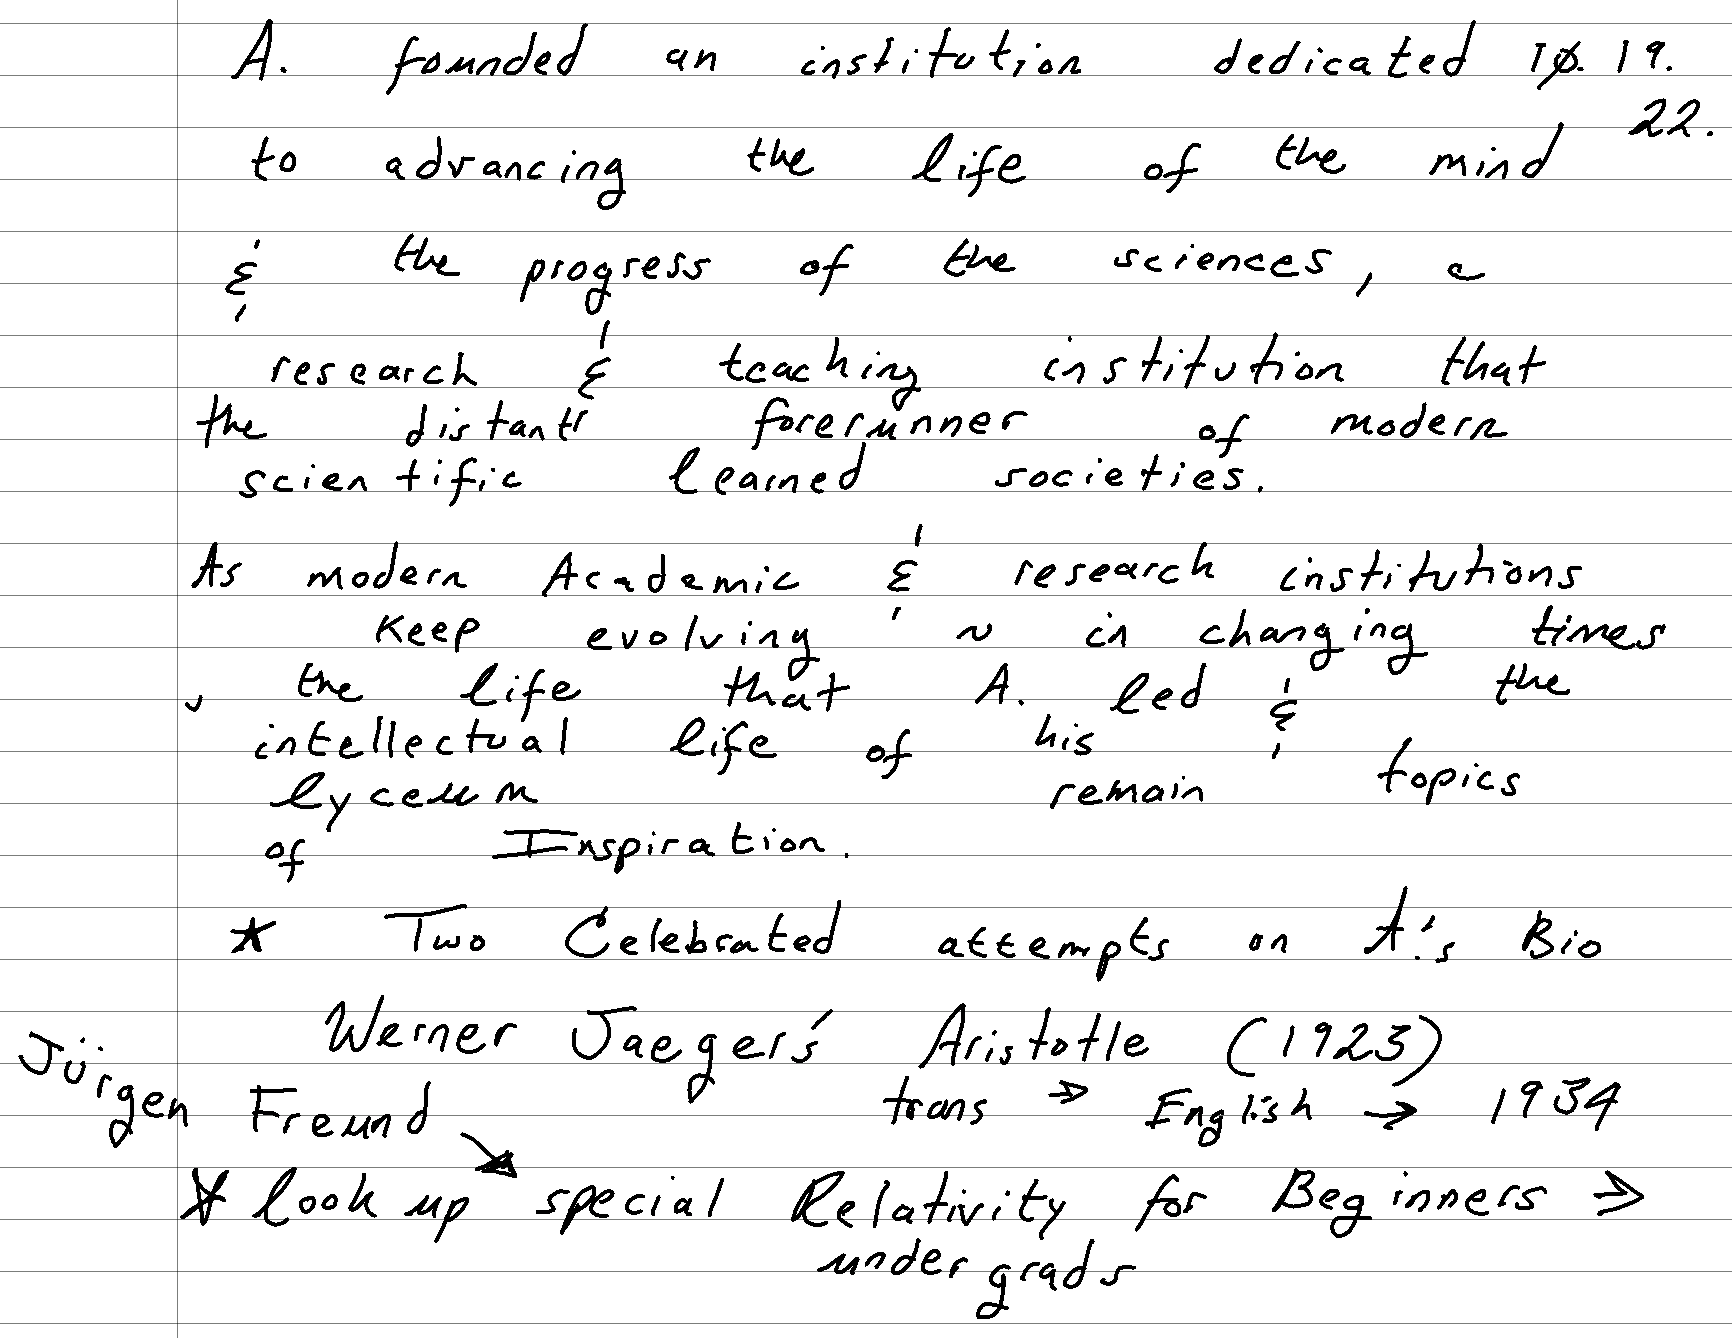 A. founded an institution dedicated 10. 19.
22.
to advancing the life of the mind
& the progress of the sciences, a
research & teaching institution that
the distant forerunner of modern
scientific learned societies.
As modern Academic & research institutions
keep evolving ~ in changing times
, the life that A. led & the
intellectual life of his
lyceum remain topics
of Inspiration.
* Two Celebrated attempts on A.'s Bio
Werner Jaeger's Aristotle (1923)
trans → English → 1934
Jürgen Freund
* look up special Relativity for Beginners →
undergrads